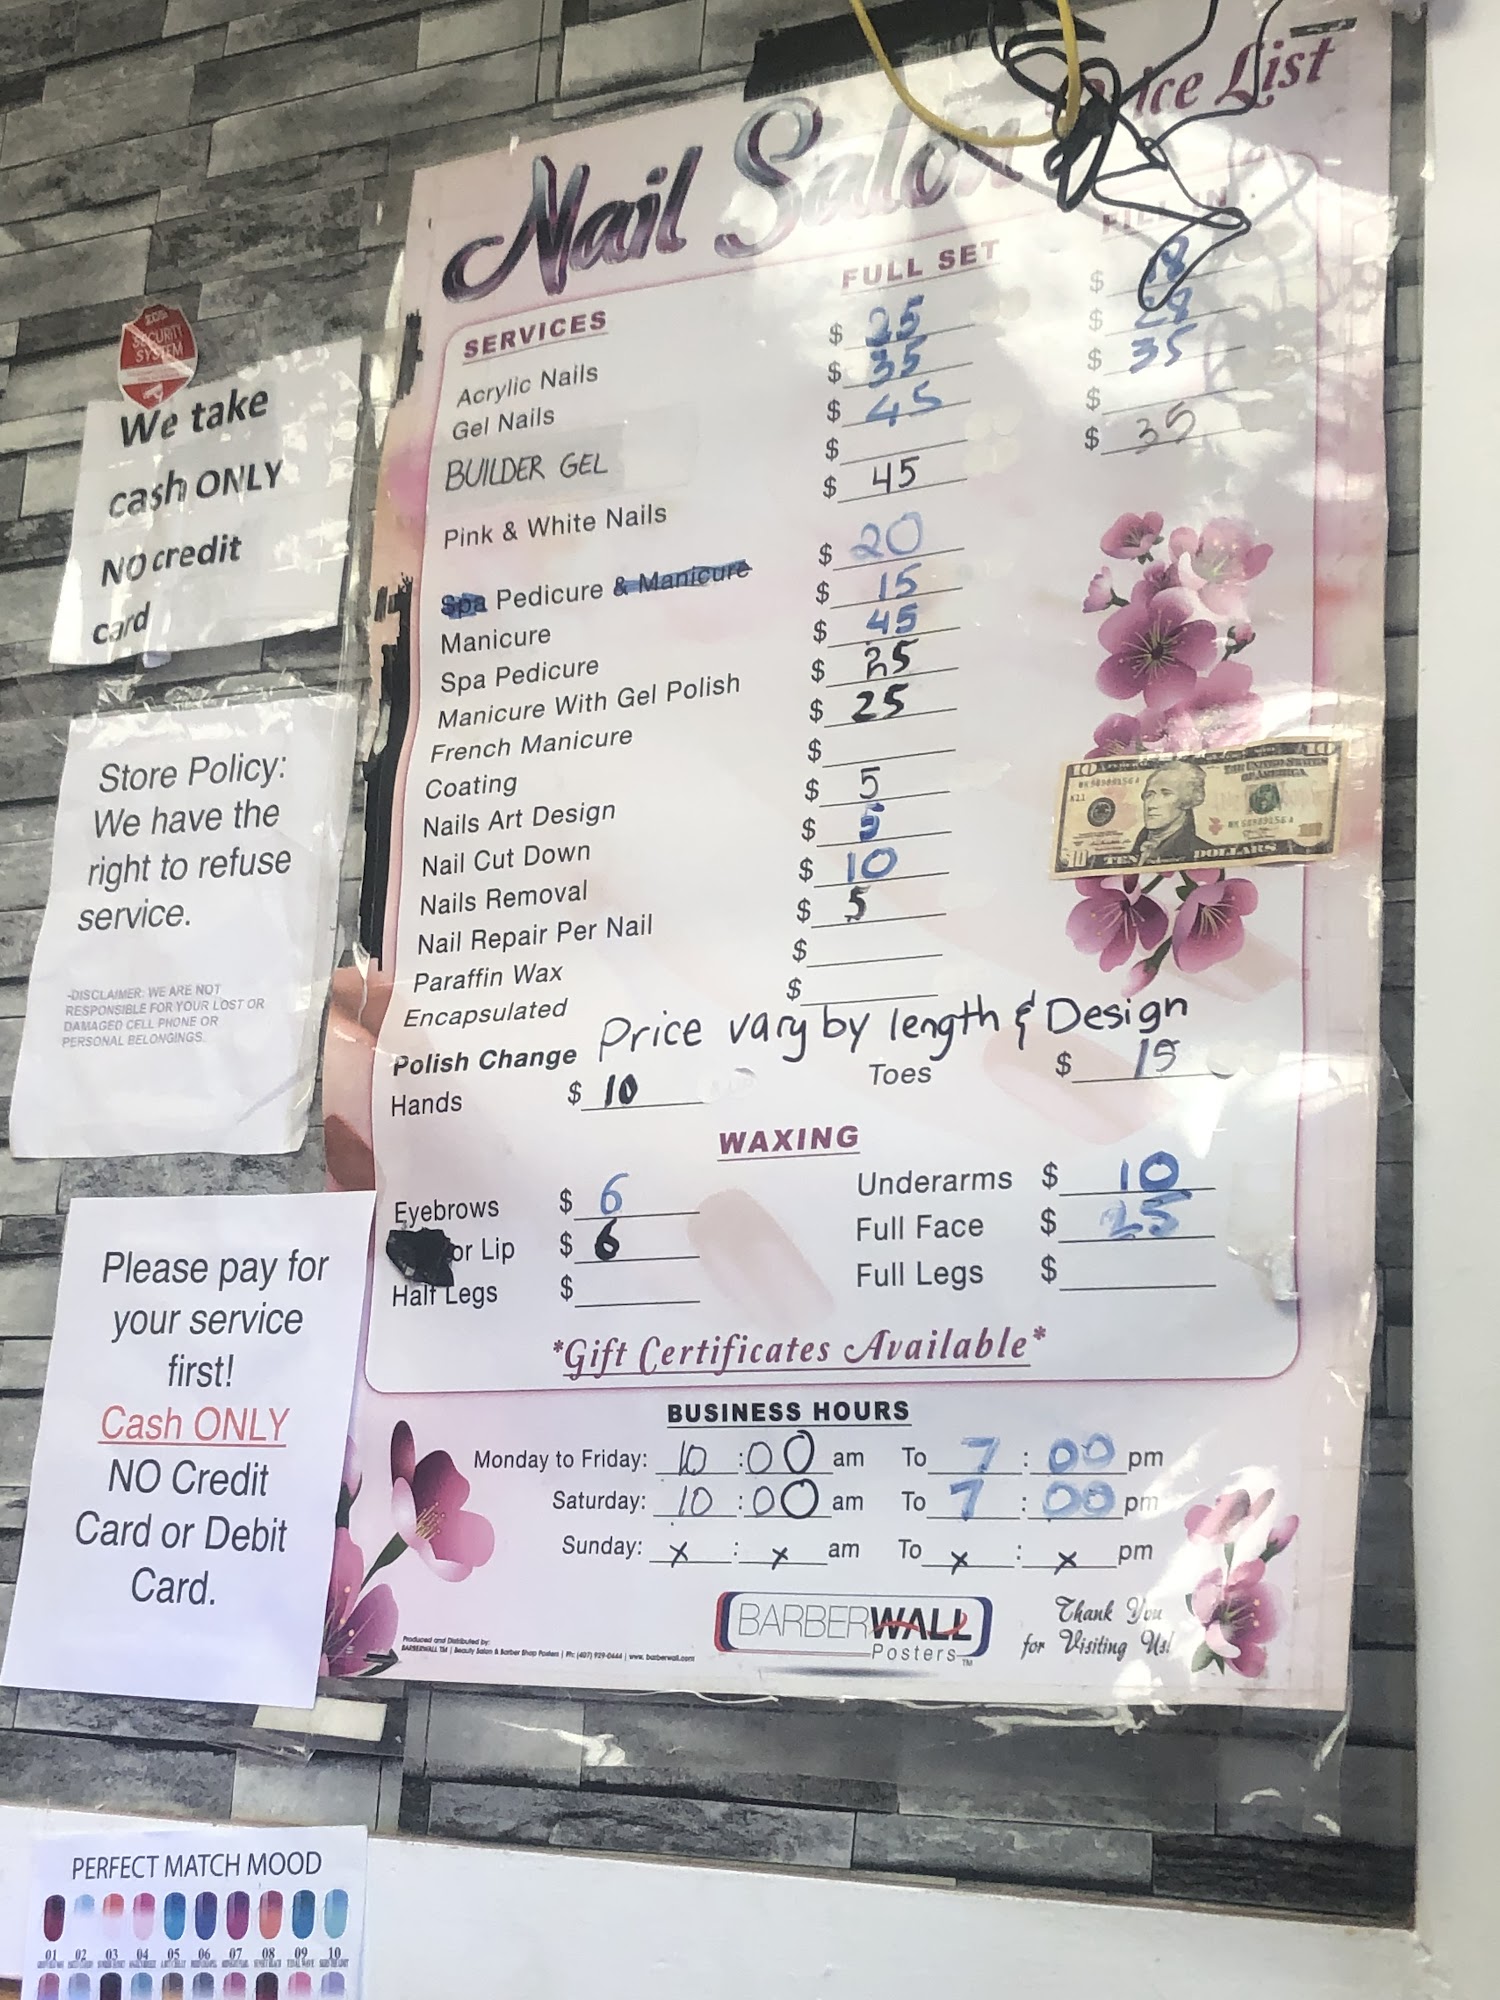 Nail Salon
Price List
SERVICES FULL SET FILL IN
Acrylic Nails $ 25 $
Gel Nails $ 35 $ 28
BUILDER GEL $ 45 $ 35
$ $
Pink & White Nails $ 45 $ 35
Spa Pedicure & Manicure $ 20
Manicure $ 15
Spa Pedicure $ 45
Manicure With Gel Polish $ 25
French Manicure $ 25
Coating $
Nails Art Design $ 5
Nail Cut Down $ 5
Nails Removal $ 10
Nail Repair Per Nail $ 5
Paraffin Wax $
Encapsulated $
Price vary by length & Design
Polish Change
Hands $ 10 Toes $ 15
WAXING
Eyebrows $ 6 Underarms $ 10
or Lip $ 6 Full Face $ 25
Half Legs $ Full Legs $
*Gift Certificates Available*
BUSINESS HOURS
Monday to Friday: 10 :00 am To 7 : 00 pm
Saturday: 10 :00 am To 7 : 00 pm
Sunday: x : x am To x : x pm
BARBERWALL
Posters TM
Thank You
for Visiting Us!
Produced and Distributed by:
BARBERWALL TM | Beauty Salon & Barber Shop Posters | Ph: (407) 929-0444 | www.barberwall.com
SECURITY
SYSTEM
We take
cash ONLY
NO credit
card
Store Policy:
We have the
right to refuse
service.
-DISCLAIMER: WE ARE NOT
RESPONSIBLE FOR YOUR LOST OR
DAMAGED CELL PHONE OR
PERSONAL BELONGINGS.
Please pay for
your service
first!
Cash ONLY
NO Credit
Card or Debit
Card.
10 THE UNITED STATES
OF AMERICA 10
10 TEN DOLLARS
PERFECT MATCH MOOD
01 02 03 04 05 06 07 08 09 10